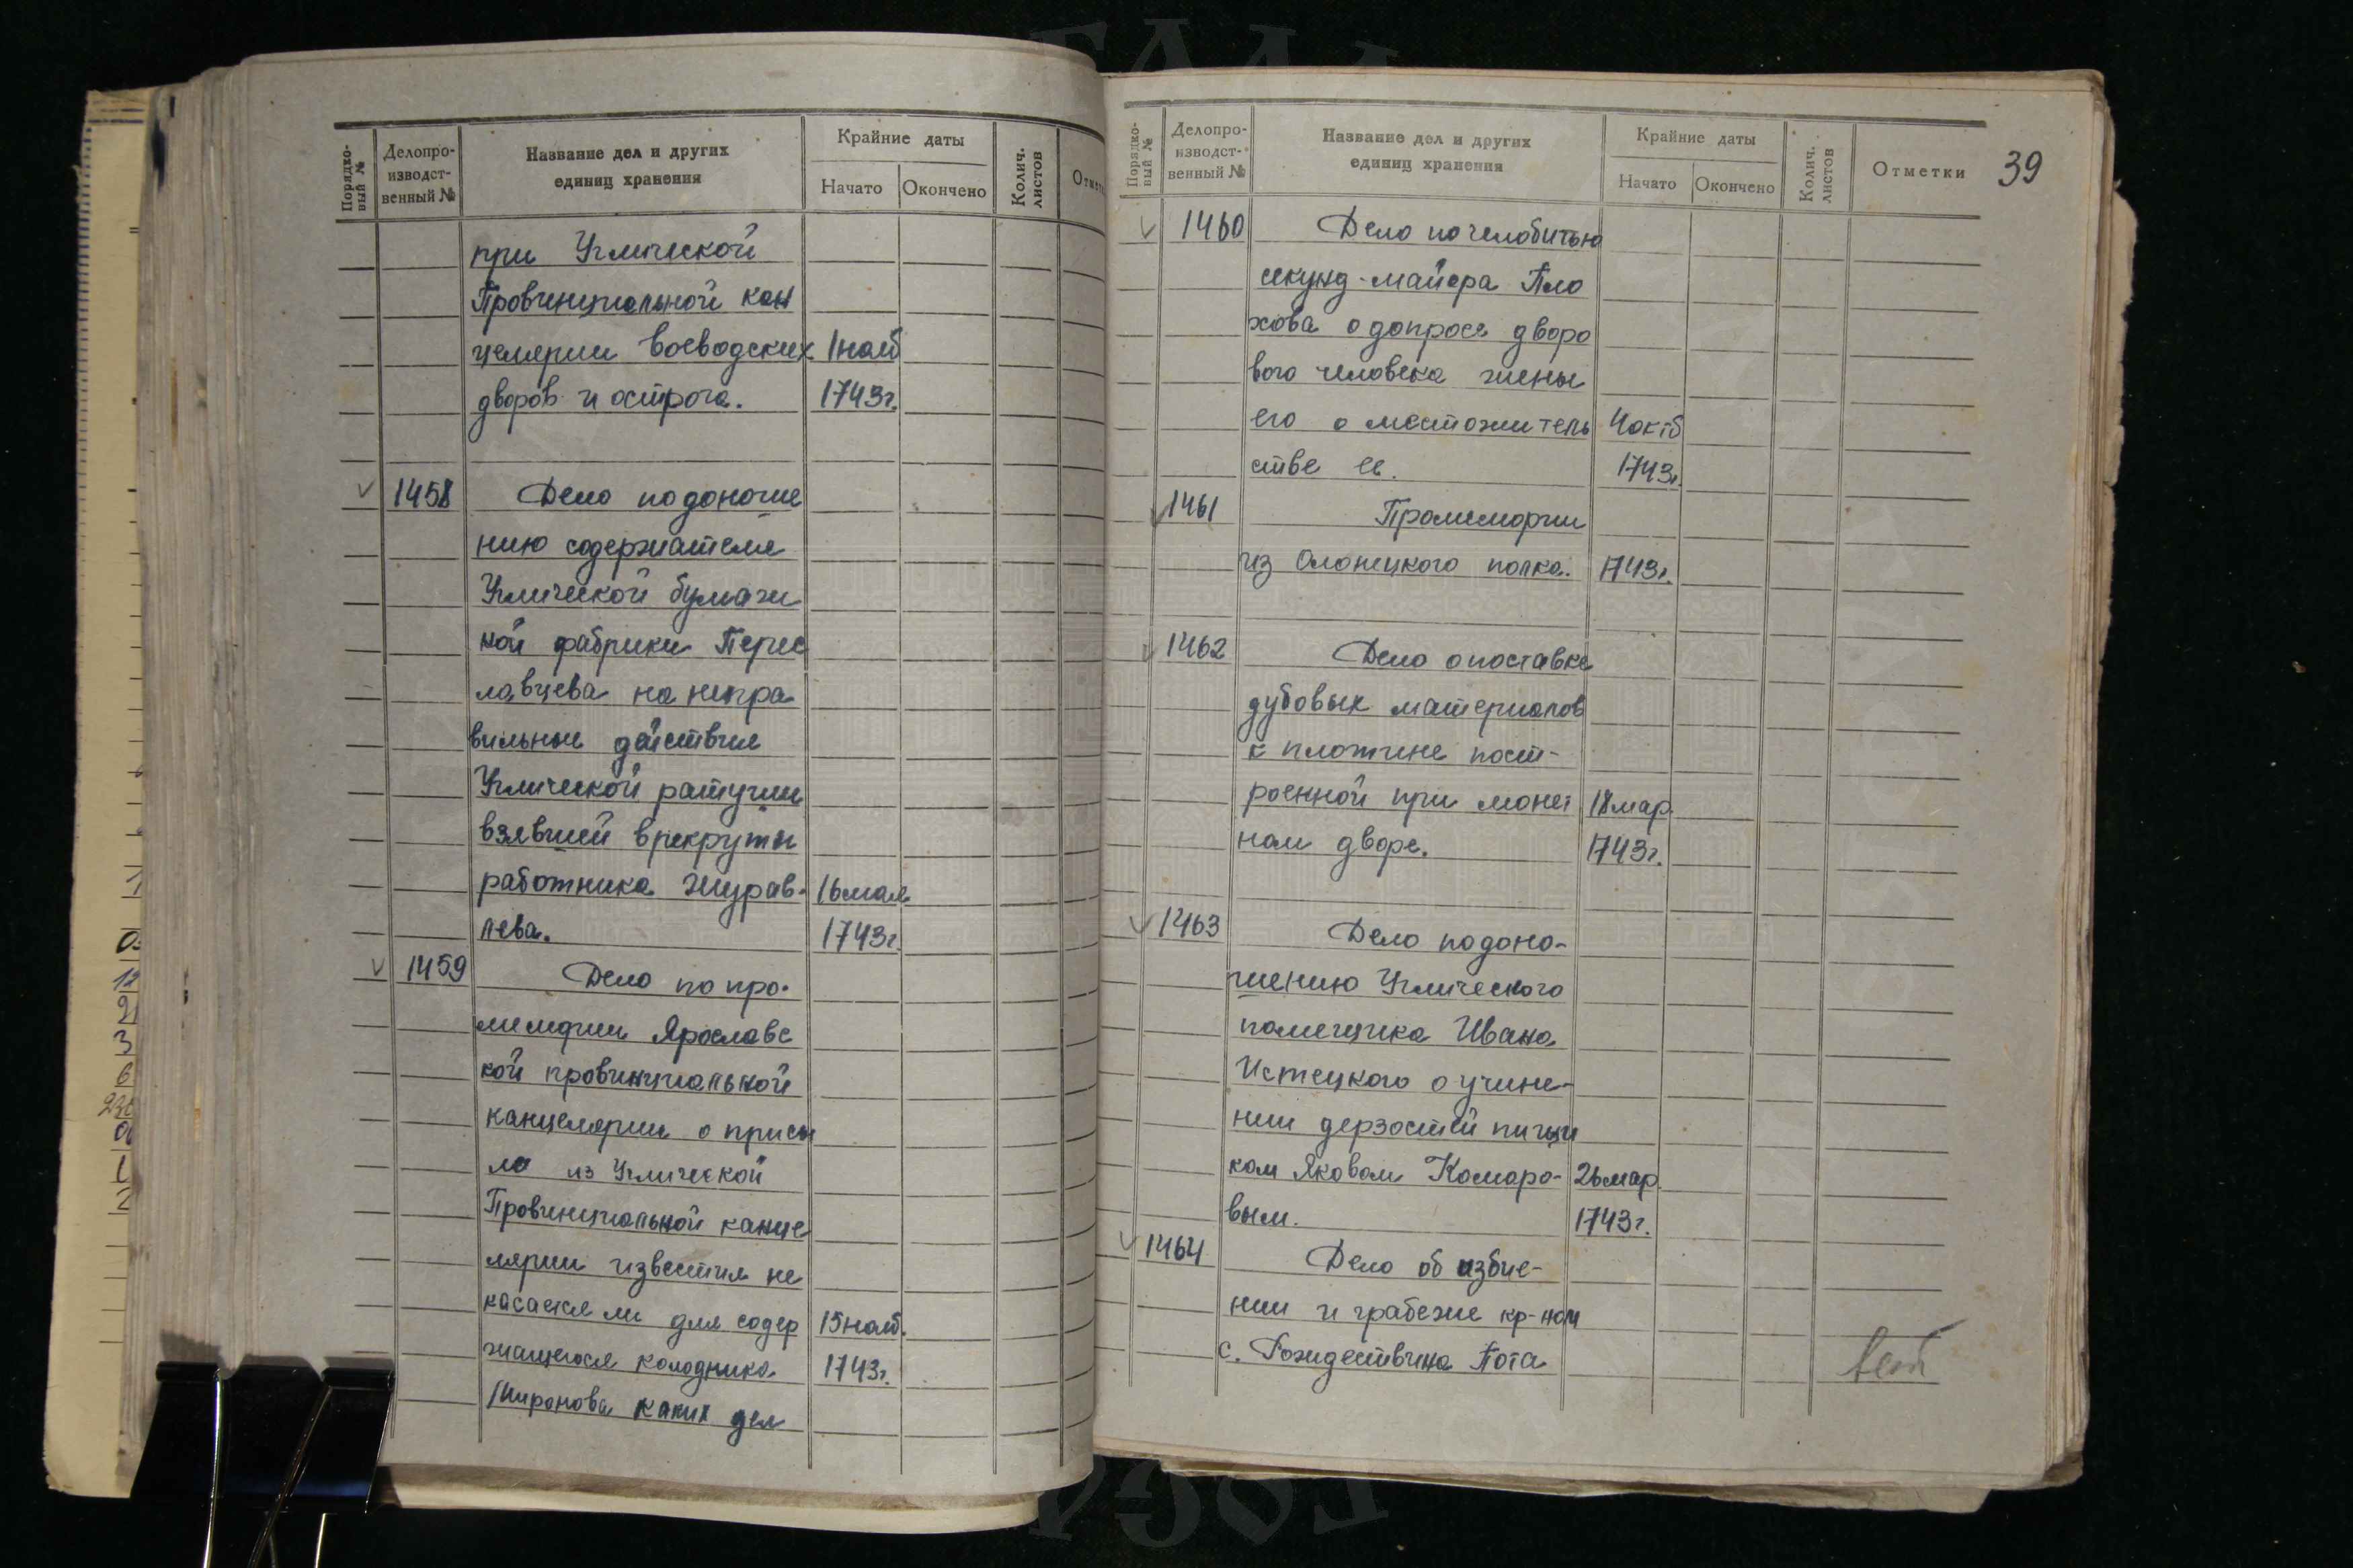 Порядко-
вый №
Делопро-
изводст-
венный №
Название дел и других
единиц хранения
Крайние даты
Начато
Окончено
Колич.
листов
при Угличской
Провинциальной кан
целярии воеводских 1 нояб
дворов и острога. 1743г.
1458 Дело по доноше
нию содержателя
Угличской бумаж
ной фабрики Перес
лавцева на непра
вильные действия
Угличской ратуши
взявшей в рекруты
работника Журав- 16 мая
лева. 1743г.
1459 Дело по про-
мемории Ярославс
кой провинциальной
канцелярии о присы
ле из Угличской
Провинциальной канце
лярии известия не
касается ли для содер 15 нояб.
жащегося колодника 1743г.
Миронова каких дел
Порядко-
вый №
Делопро-
изводст-
венный №
Название дел и других
единиц хранения
Крайние даты
Начато
Окончено
Колич.
листов
Отметки
39
1460 Дело по челобитью
секунд-майора Пло
хова о допросе дворо
вого человека жены
его о местожитель 4 октб
стве ее. 1743г.
1461 Промемории
из Олонецкого полка. 1743г.
1462 Дело о поставке
дубовых материалов
к плотине пост-
роенной при монет 18 мар.
ном дворе. 1743г.
1463 Дело по доно-
шению Угличского
помещика Ивана
Истецкого о учине-
нии дерзостей
ком Яковом Комаро- 26 мар.
вым. 1743г.
1464 Дело об избие-
нии и грабеже кр-ном
с. Рождествина Пота